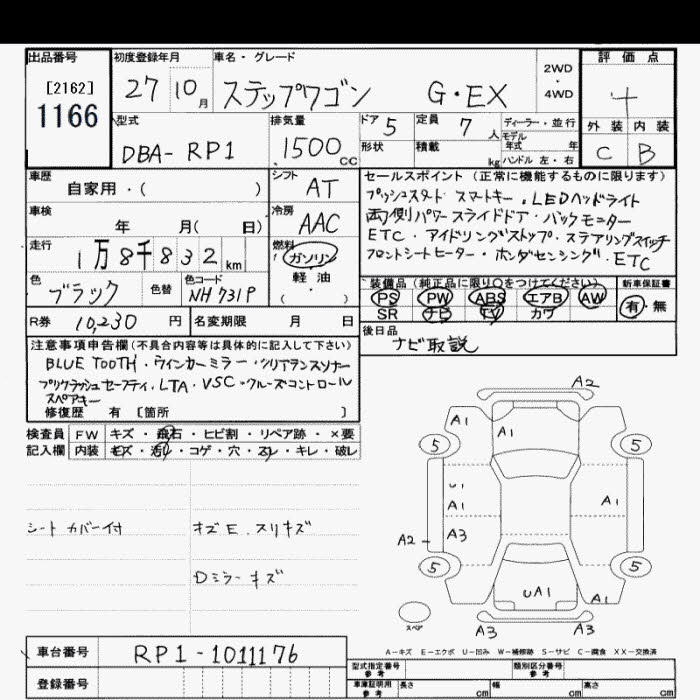 出品番号 初度登録年月 車名・グレード 評価点
[2162] 27 10月 ステップワゴン G・EX 2WD・4WD 4
1166
型式 排気量 ドア 5 定員 7人 ディーラー・並行 外装 内装
モデル
DBA- RP1 1500cc 形状 積載 kg 年式 年 C B
ハンドル 左・右
車歴 シフト セールスポイント (正常に機能するものに限ります)
自家用・( ) AT プッシュスタート スマートキー・LEDヘッドライト
車検 冷房 両側パワースライドドア・バックモニター
年 月( 日) AAC ETC・アイドリングストップ・ステアリングスイッチ
走行 燃料 フロントシートヒーター・ホンダセンシング・ETC
1万8千832km ガソリン
軽油
( )
色 色替 色コード 装備品(純正品に限り○をつけてください) 新車保証書
ブラック NH731P PS PW ABS エアB AW 有・無
SR ナビ TV カワ
R券 10,230円 名変期限 月 日 後日品
ナビ取説
注意事項申告欄(不具合内容等は具体的に記入して下さい)
BLUE TOOTH・ウインカーミラー・クリアランスソナー
プリクラッシュセーフティ・LTA・VSC・クルーズコントロール
スペアキー
修復歴 有 [箇所 ]
検査員 FW キズ・飛石・ヒビ割・リペア跡・×要
記入欄 内装 キズ・汚れ・コゲ・穴・スレ・キレ・破レ
A2
A1 A1
5 5
U1
A1 A1
シートカバー付 キズE.スリキズ
A2 A3
5 5
Dミラーキズ
UA1 A1
スペア
A3 A3
A-キズ E-エクボ U-凹み W-補修跡 S-サビ C-腐食 XX-交換済
車台番号 RP1-1011176
型式指定番号 参考 類別区分番号 参考
登録番号
車庫証明用 参考 長さ cm 幅 cm 高さ cm